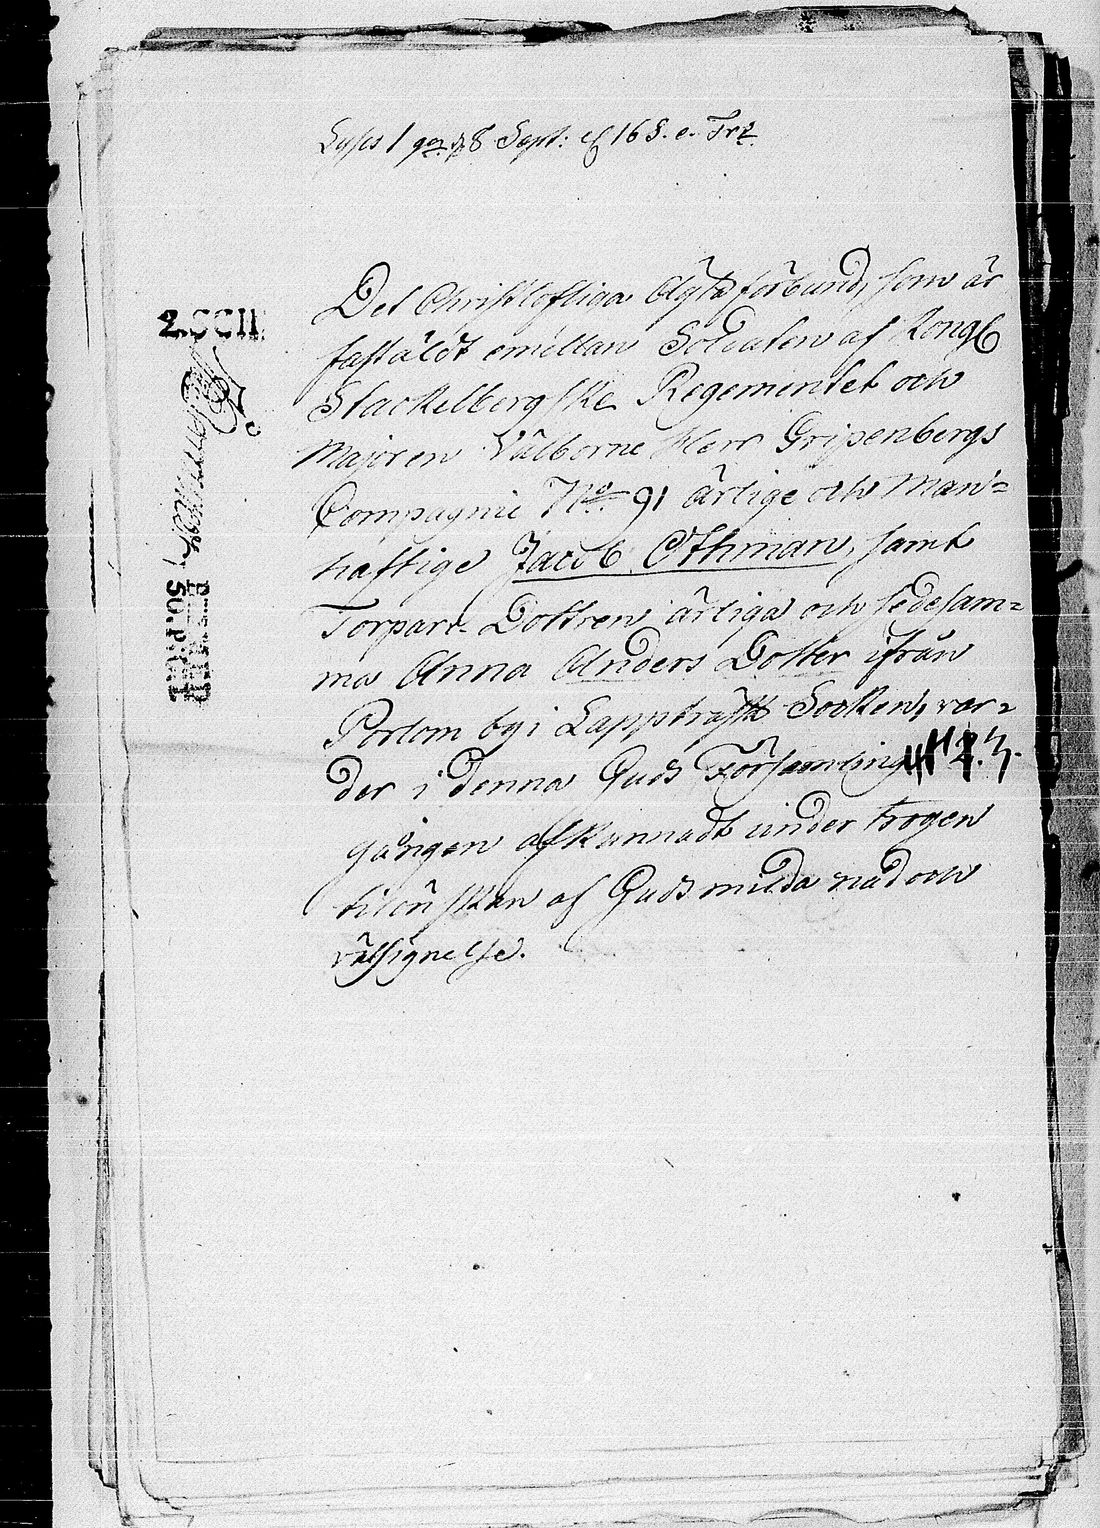 Lyses 1 gen 28 Sept: el 16 S. e. Tr:
Det Christlofliga Ägtaförbund, som är
fastäldt emellan Soldaten af Kongl
Stackelbergske Regementet och
Majoren Välborne Herr Gripenbergs
Compagnie No. 91 ärlige och Man=
haftige Jacob Othman, samt
Torpare Dottren ärliga och sedesam=
ma Anna Anders Dotter ifrån
Porlom by i Lappträsk Socken, var=
der i denna Guds Församling 2. 3.
gången afkunnadt under trogen
tilönskan af Guds milda nåd och
välsignelse.